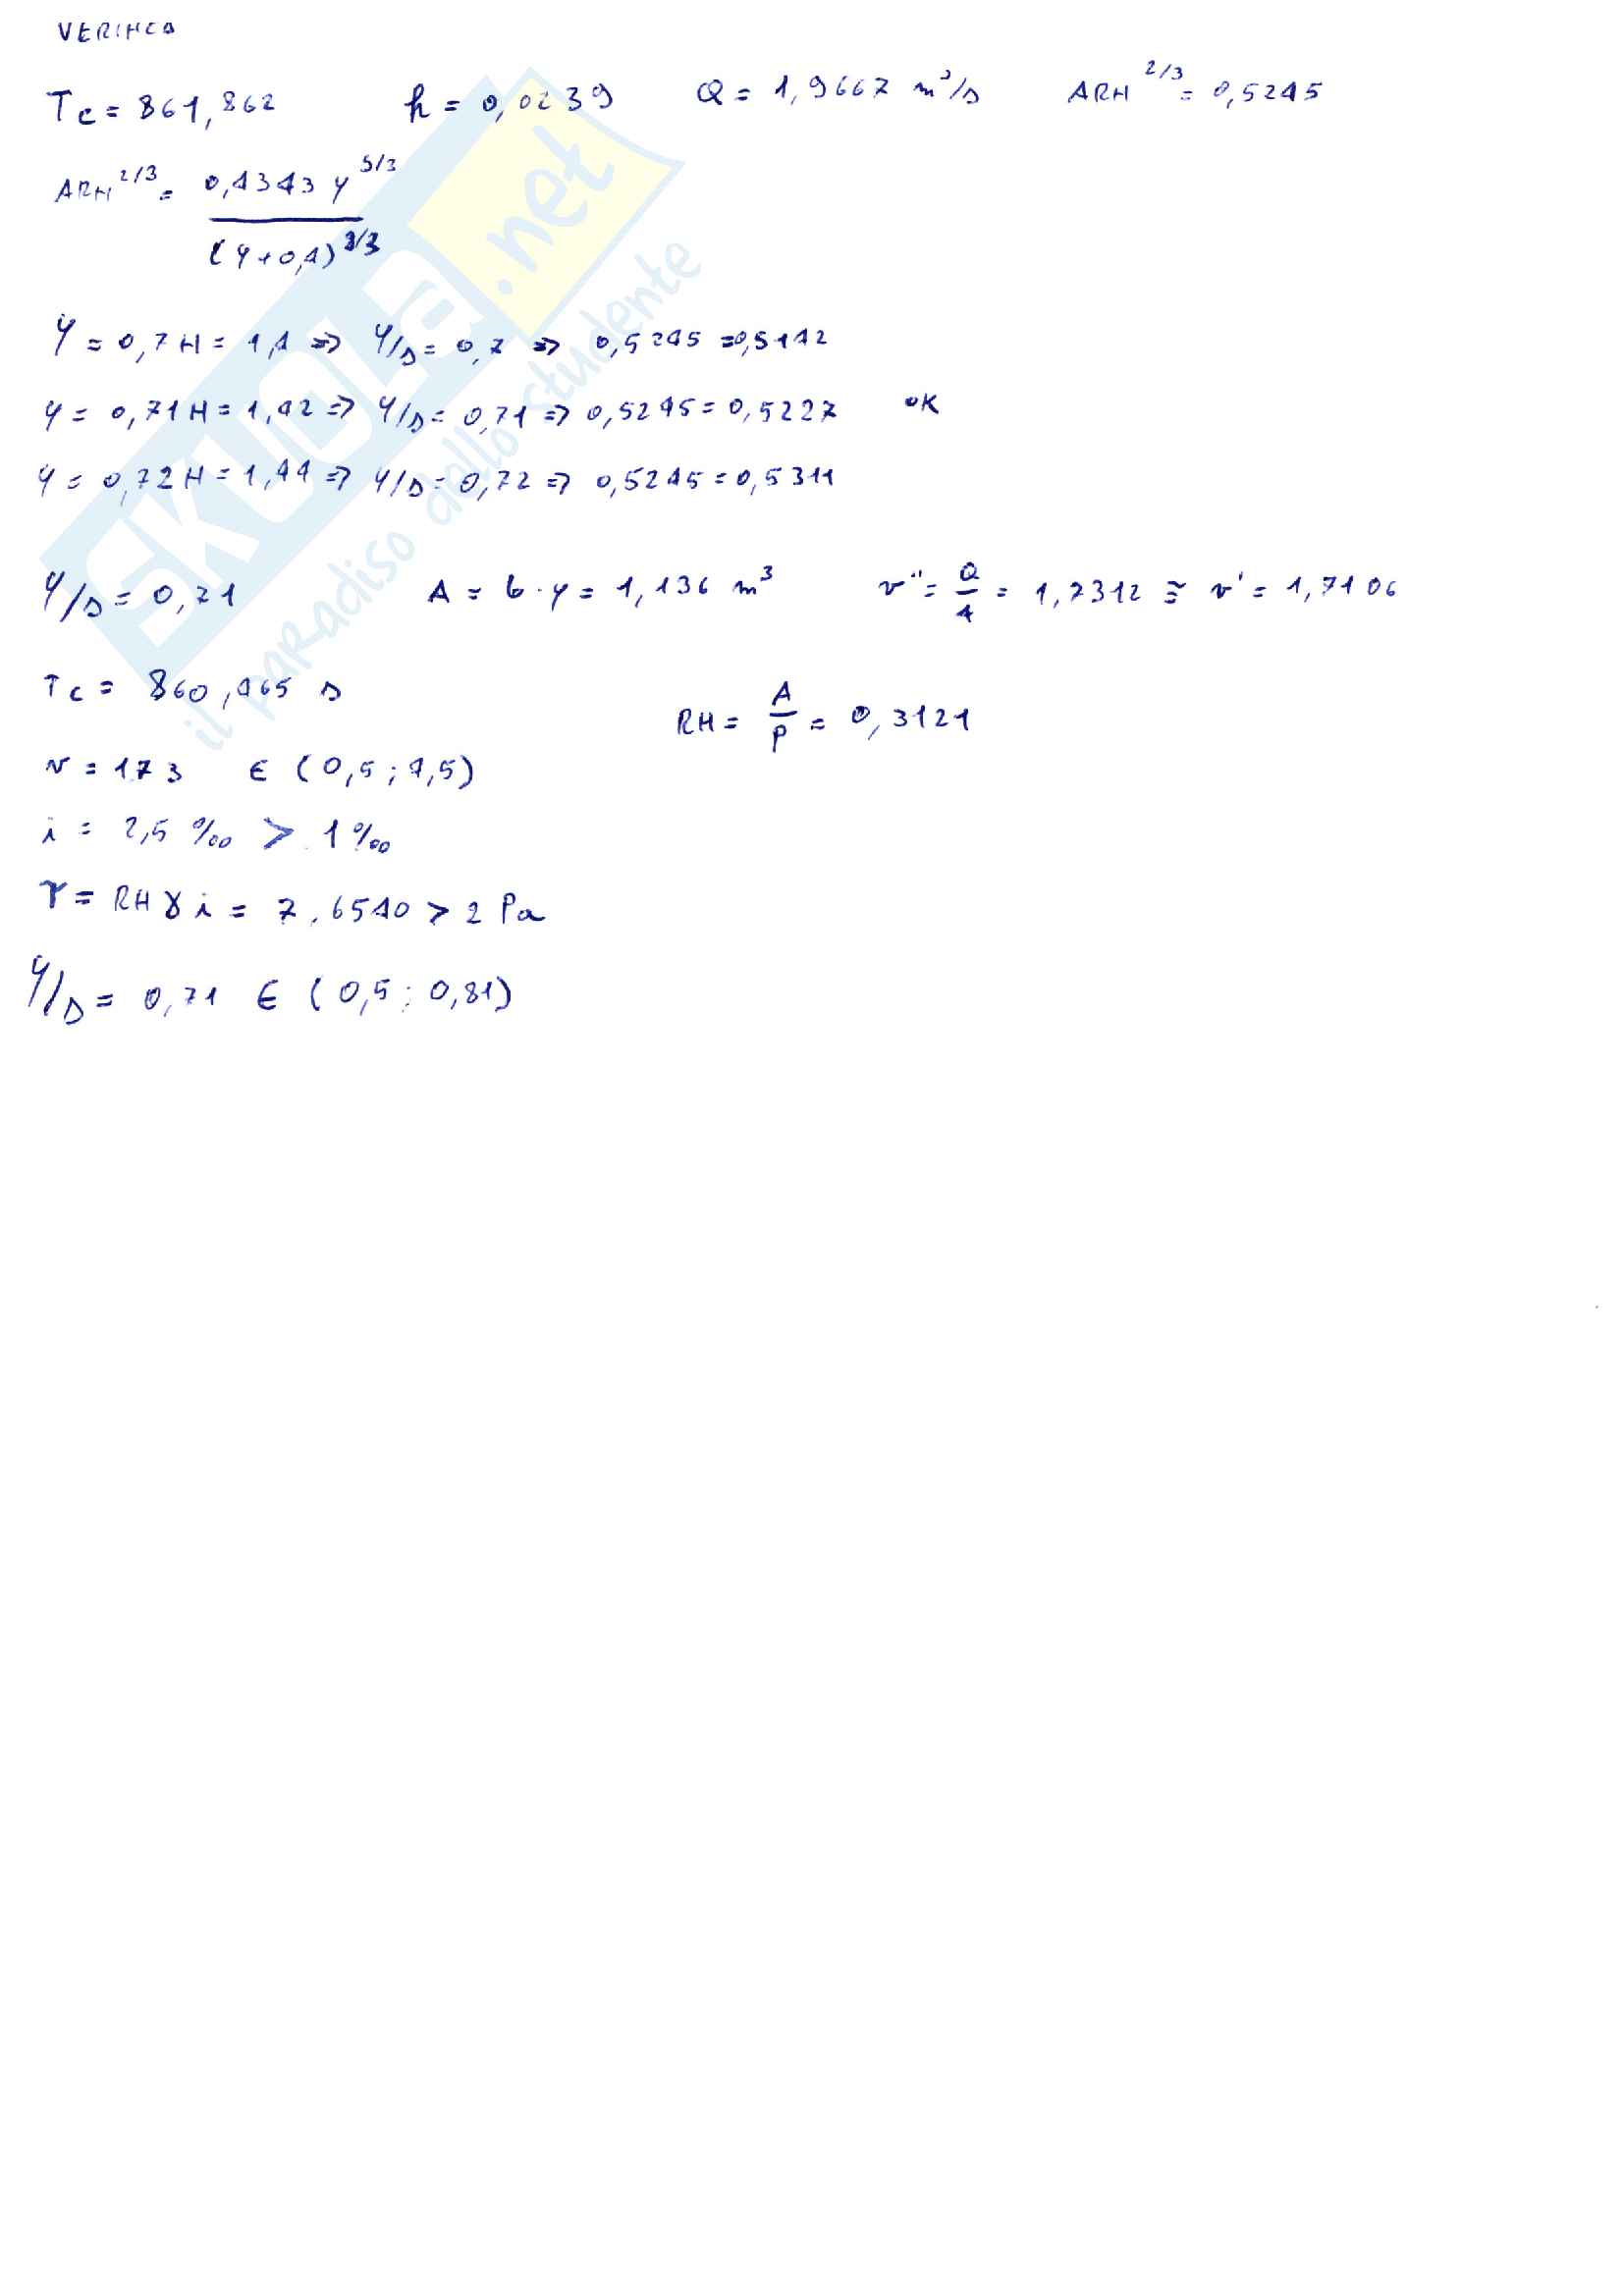 VERIFICA
Tc = 861,862 h = 0,0239 Q = 1,9667 m³/s ARH^2/3 = 0,5245
ARH^2/3 = 0,4343 y^5/3
(y+0,4)^2/3
y = 0,7H = 1,4 => y/D = 0,7 => 0,5245 = 0,5142
y = 0,71H = 1,42 => y/D = 0,71 => 0,5245 = 0,5227 OK
y = 0,72H = 1,44 => y/D = 0,72 => 0,5245 = 0,5311
y/D = 0,71 A = b·y = 1,136 m³ v'' = Q/A = 1,7312 ≅ v' = 1,7106
Tc = 860,465 s
RH = A/P = 0,3121
v = 1.73 ∈ (0,5; 4,5)
i = 2,5 ‰ > 1‰
τ = RH γ i = 7,6540 > 2 Pa
y/D = 0,71 ∈ (0,5; 0,81)
SKUOLa.net
il paradiso dello studente